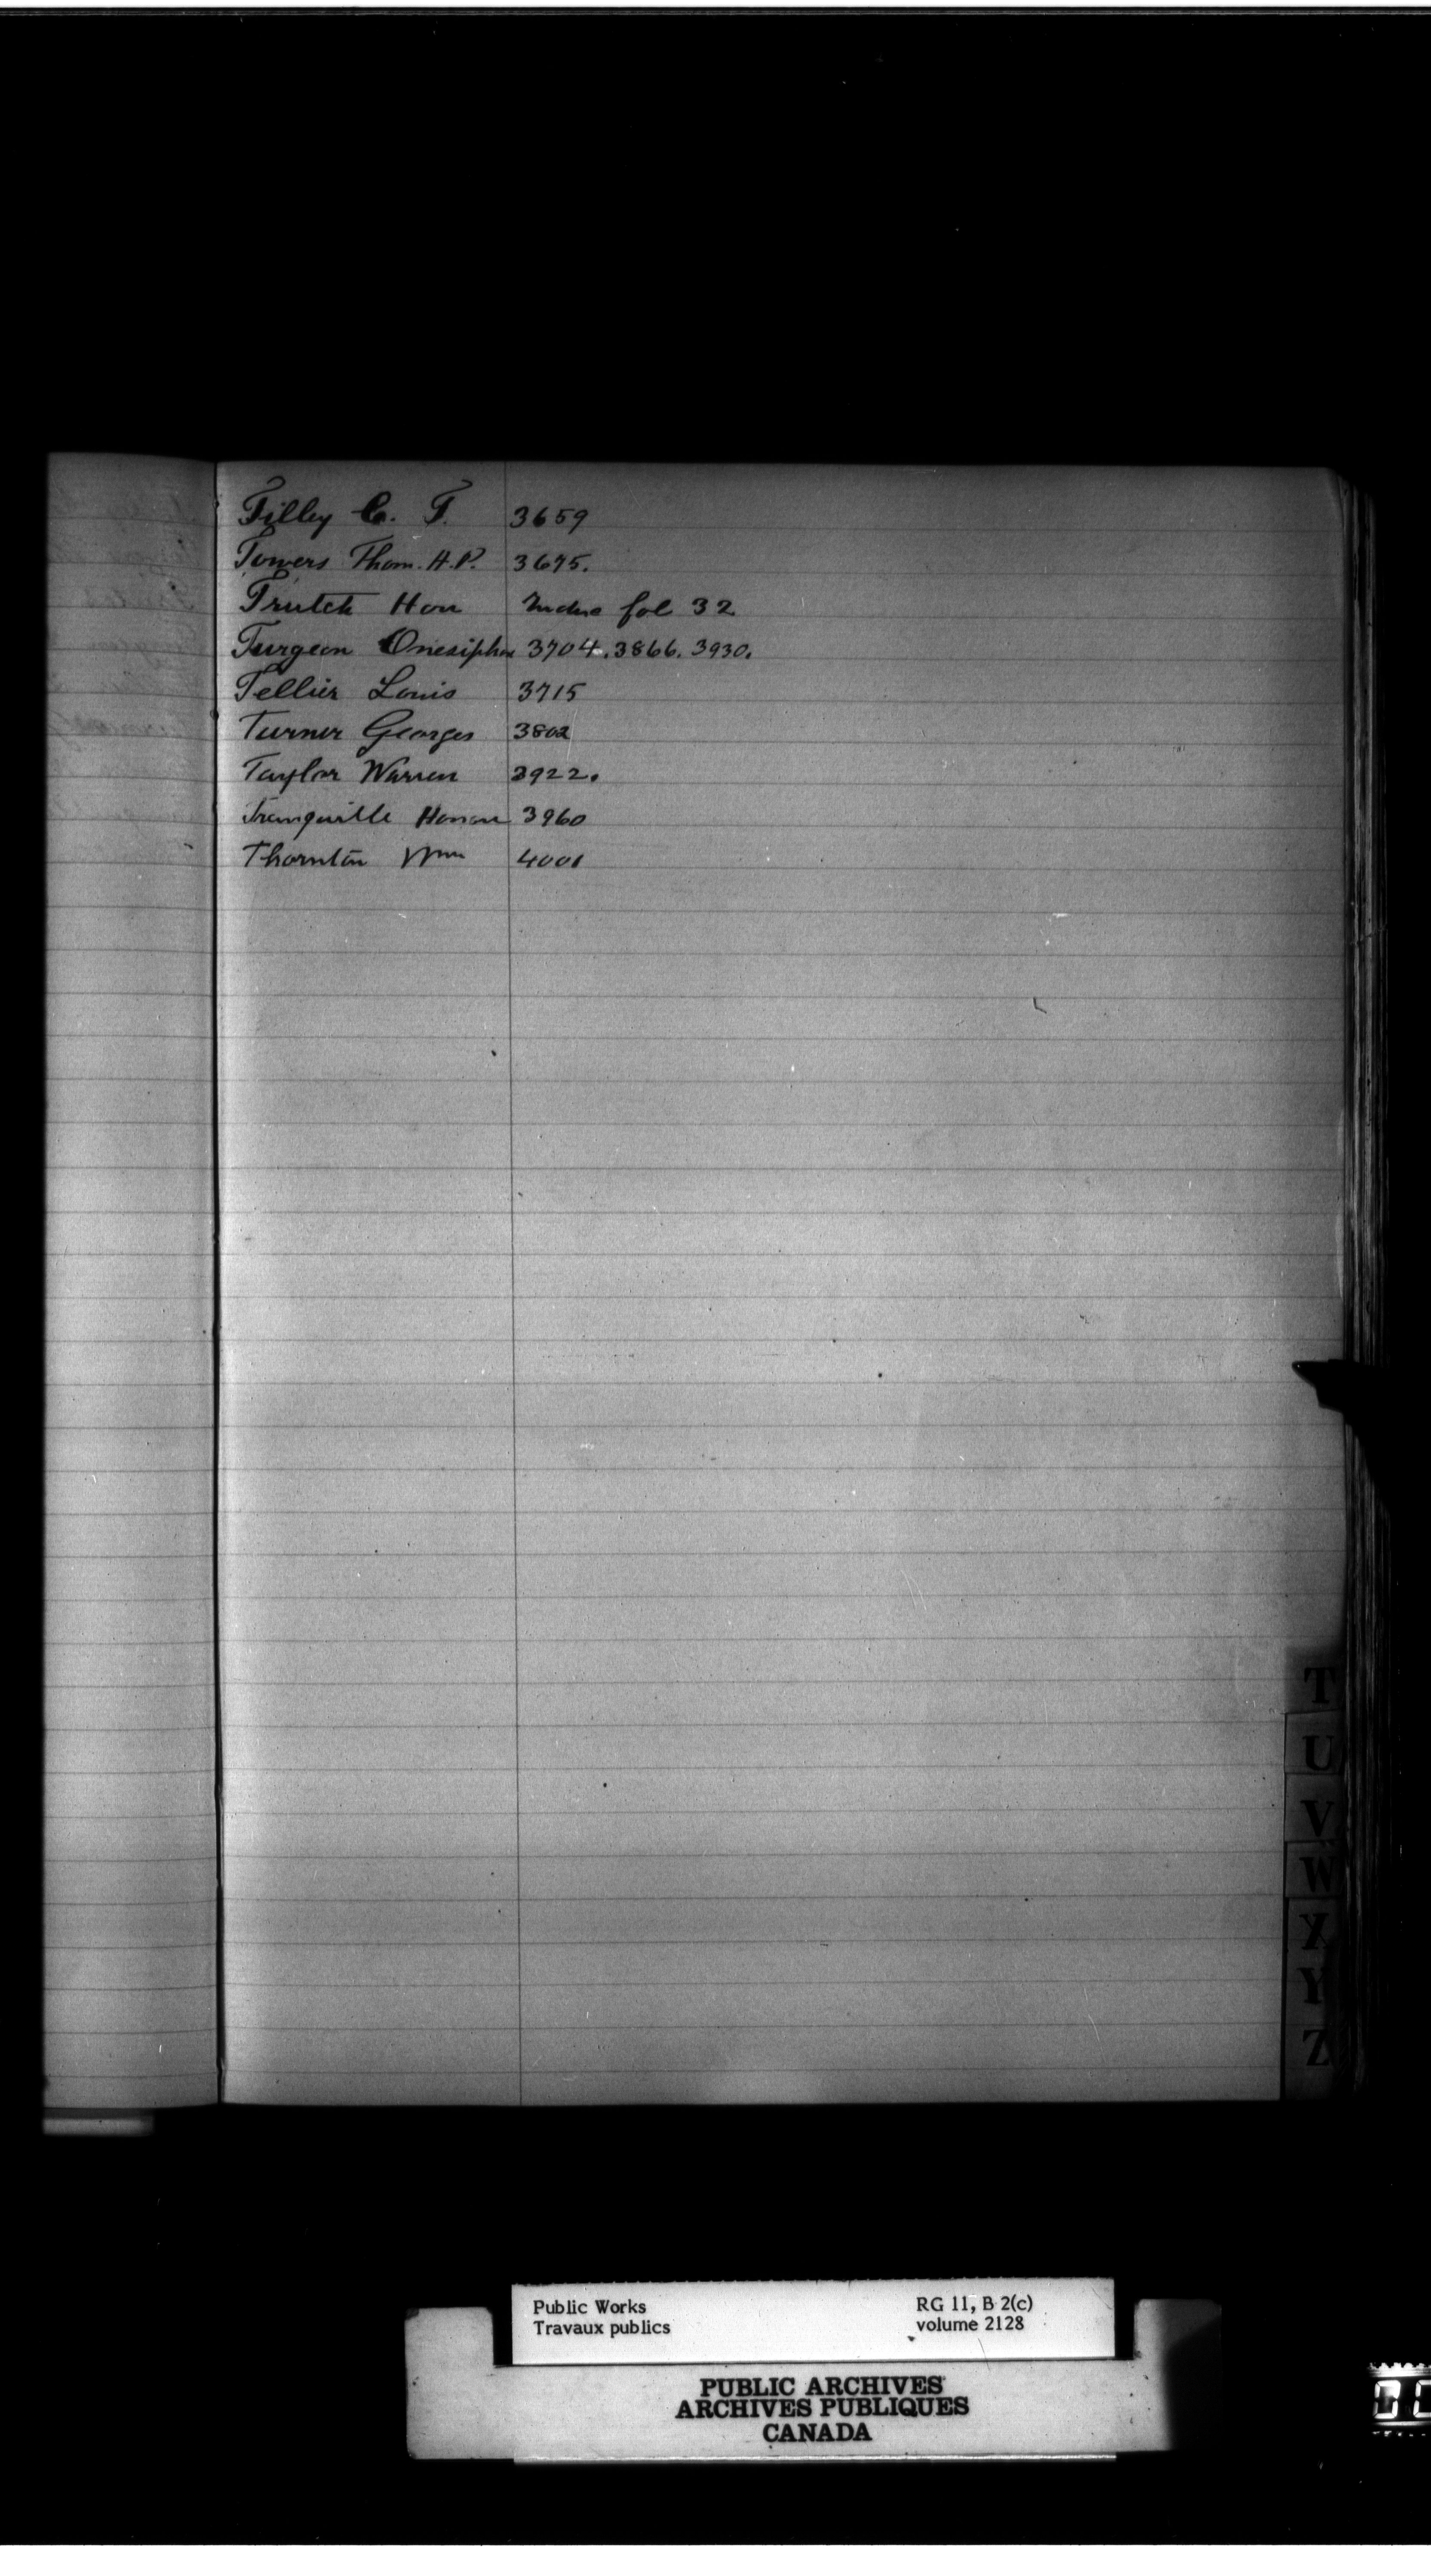 Tilley C. T. 3659
Towers Thom. H.P. 3675.
Trutch Hon fol 32
Turgeon Onesiphor 3704. 3866. 3930.
Tellier Louis 3715
Turner Georges 3802
Taylor Warren 3922.
Tranquille Honore 3960
Thornton Wm 4001
T
U
V
W
X
Y
Z
Public Works RG 11, B 2(c)
Travaux publics volume 2128
PUBLIC ARCHIVES
ARCHIVES PUBLIQUES
CANADA